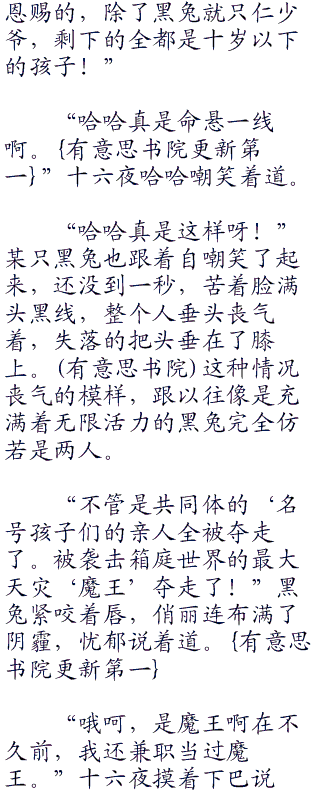 恩赐的，除了黑兔就只仁少
爷，剩下的全都是十岁以下
的孩子！”
“哈哈真是命悬一线
啊。{有意思书院更新第
一}”十六夜哈哈嘲笑着道。
“哈哈真是这样呀！”
某只黑兔也跟着自嘲笑了起
来，还没到一秒，苦着脸满
头黑线，整个人垂头丧气
着，失落的把头垂在了膝
上。(有意思书院)这种情况
丧气的模样，跟以往像是充
满着无限活力的黑兔完全仿
若是两人。
“不管是共同体的‘名
号孩子们的亲人全被夺走
了。被袭击箱庭世界的最大
天灾‘魔王’夺走了！”黑
兔紧咬着唇，俏丽连布满了
阴霾，忧郁说着道。{有意思
书院更新第一}
“哦呵，是魔王啊在不
久前，我还兼职当过魔
王。”十六夜摸着下巴说